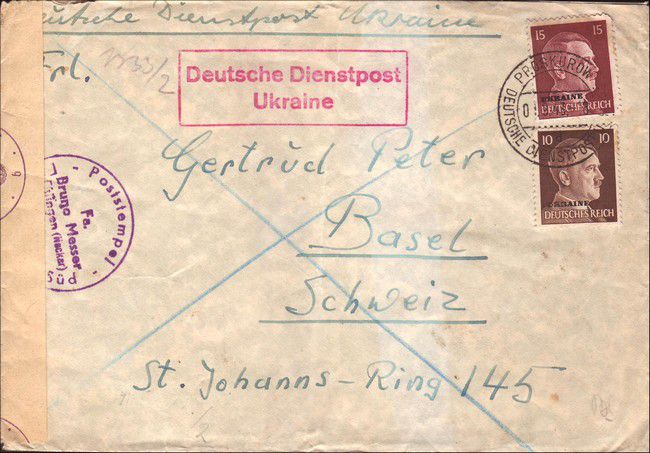 Deutsche Dienstpost Ukraine
Frl.
Deutsche Dienstpost
Ukraine
15 15
UKRAINE
DEUTSCHES REICH
PROSKUROW
DEUTSCHE DIENSTPOST
10 10
UKRAINE
DEUTSCHES REICH
Gertrud Peter
Basel
Schweiz
St. Johanns-Ring 145
- Poststempel -
Fa.
Bruno Messer
(Neckar)
Süd